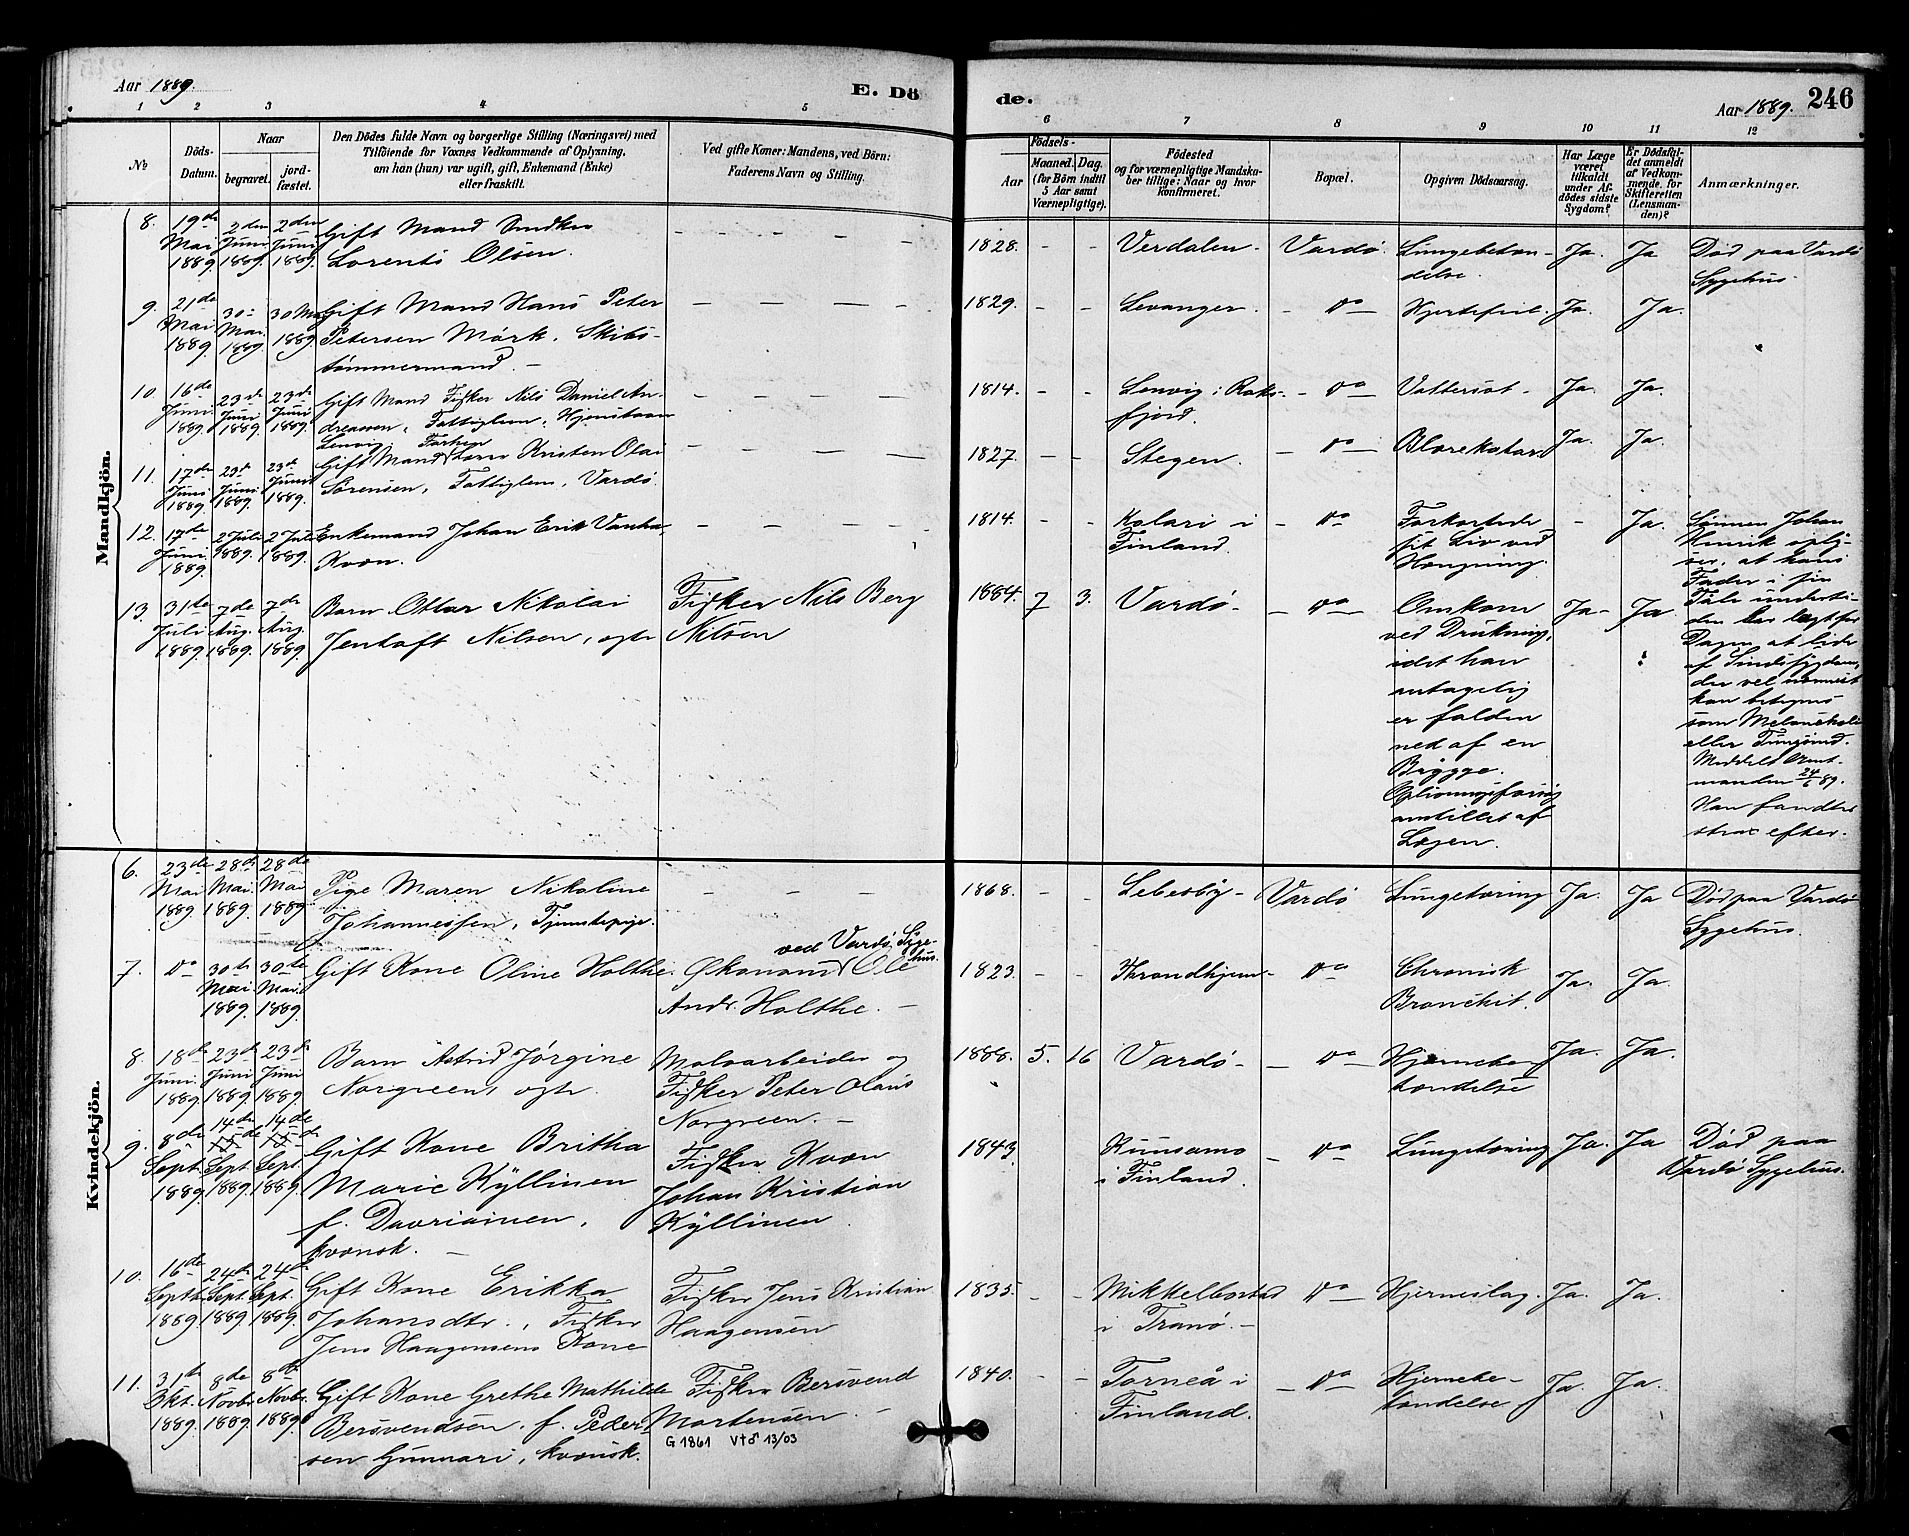 Aar 1889.
E. Dö
de.
Aar 1889.
246
1 2 3 4 5
6 7 8 9 10 11 12
№
Döds-
Datum.
Naar
begravet.
jord-
fæstet.
Den Dödes fulde Navn og borgerlige Stilling (Næringsvei) med
Tilföiende for Voxnes Vedkommende af Oplysning,
om han (hun) var ugift, gift, Enkemand (Enke)
eller fraskilt.
Ved gifte Koner: Mandens, ved Börn:
Faderens Navn og Stilling.
Födsels-
Aar
Maaned. Dag.
(for Börn indtil
5 Aar samt
Værnepligtige).
Födested
og for værnepligtige Mandska-
ber tillige: Naar og hvor
konfirmeret.
Bopæl.
Opgiven Dödsaarsag.
Har Læge
været
tilkaldt
under Af-
dödes sidste
Sygdom?
Er Dödsfal-
det anmeldt
af Vedkom-
mende for
Skifteretten
(Lensman-
den)?
Anmærkninger.
Mandkjön.
8. 19de Mai 1889. 2den Juni 1889. 2den Juni 1889.
Gift Mand Snedker
Lorents Olsen.
1828. - - Verdalen. Vardø. Lungebetæn-
delse. Ja. Ja Død paa Vardø
Sygehus.
9. 21de Mai 1889 30- Mai. 1889. 30 Mai 1889.
Gift Mand Hans Peter
Petersen Mörk. Skibs-
tømmermand. -
1829. - - Levanger. - Do - Hjertefeil. Ja. Ja.
10. 16de Juni. 1889. 23de Juni 1889. 23de Juni 1889.
Gift Mand Fisker Nils Daniel An-
dreassen, Fattiglem, Hjemstavn
Lenvig.
1814. - - Lenvig i Raks-
fjord. - Do - Vattersot. Ja. Ja.
11. 17de Juni. 1889. 23de Juni 1889. 23de Juni 1889.
Gift Mand Kristen Olai
Sörensen, Fattiglem, Vardø.
1827. - - Stegen. - Do - Blærekatar. Ja. Ja.
12. 17de Juni. 1889. 2 Juli 1889. 2 Juli 1889.
Enkemand Johan Erik Vanha,
Kvæn.
1814. - - Kolari i
Finland. - Do - Forkortede
sit Liv ved
Hængning. - Ja.
Sønnen Johan
Henrik oply-
ser, at hans
Fader i sin
Tale underti-
den har lagt for
Dagen at lide
af Sindssygdom,
der vel nærmest
kan betegnes
som Melancholi
eller Tungsind.
Meddelt Amt-
manden 24/6 89.
Han fandtes
strax efter.
13. 31te Juli 1889. 7de Aug. 1889. 7de Aug. 1889.
Barn Ottar Nikolai
Jentoft Nilsen, ægte
Fisker Nils Berg
Nilsen
1884. 7 3. Vardø - - Do - Omkom
ved Drukning,
idet han
antagelig
er falden
ned af en
Brygge.
Oplivningsforsøg
anstillet af
Lægen. Ja - Ja.
Kvindekjön.
6. 23de Mai 1889. 28de Mai. 1889. 28de Mai 1889.
Pige Maren Nikoline
Johannessen, Tjenestepige.
1868. - - Lebesby - Vardø Lungetæring Ja. Ja Død paa Vardø
Sygehus.
7. Do 30te Mai. 1889. 30te Mai. 1889.
Gift Kone Oline Holthe.
Økonom ved Vardø Syge-
hus. Ole
Andr. Holthe. -
1823. - - Throndhjem - Do - Chronisk
Bronchit. Ja. Ja.
8. 18de Juni. 1889. 23de Juni 1889. 23de Juni 1889.
Barn Astrid Jørgine
Norgreen, ægte.
Malerarbeider og
Fisker Peter Olaus
Norgreen. -
1888. 5. 16 Vardø - - Do - Hjernebe-
tændelse Ja. Ja.
9. 8de Sept. 1889. 14de Sept 1889. 14de Sept. 1889.
Gift Kone Britha
Marie Kyllinen
f. Davriainen,
kvænsk. -
Fisker Kvæn
Johan Kristian
Kyllinen
1843. - - Kuusamo
i Finland. - Do - Lungetæring Ja. Ja Død paa
Vardø Sygehus.
10. 16de Septb. 1889. 24de Sept. 1889. 24de Sept. 1889.
Gift Kone Erikka
Johansdtr., Fisker
Jens Haagensens Kone
Fisker Jens Kristian
Haagensen
1835. - - Mikkelbostad
i Tranø. - Do - Hjerneslag. Ja. Ja.
11. 31te Okt. 1889. 8de Novb. 1889. 8de Novb. 1889.
Gift Kone Grethe Mathilde
Bersvendsen. f. Peder-
sen Gunnari, kvænsk.
Fisker Bersvend
Mortensen. -
G 1861 V+♂ 13/03
1840. - - Torneå i
Finland. - Do - Hjernebe-
tændelse Ja. Ja.